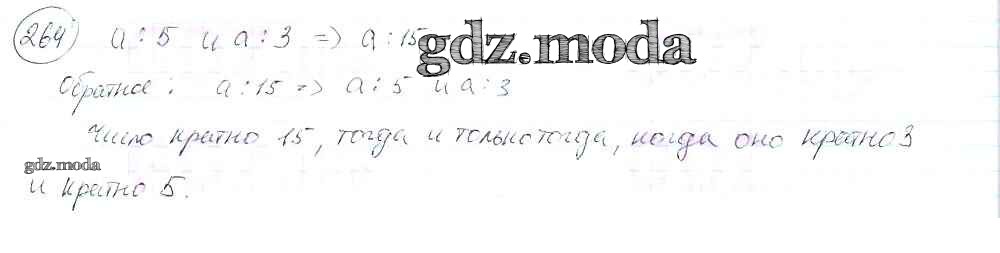 264 a ⋮ 5 и a ⋮ 3 => a ⋮ 15
gdz.moda
Обратное: a ⋮ 15 => a ⋮ 5 и a ⋮ 3
Число кратно 15, тогда и только тогда, когда оно кратно 3
gdz.moda
и кратно 5.